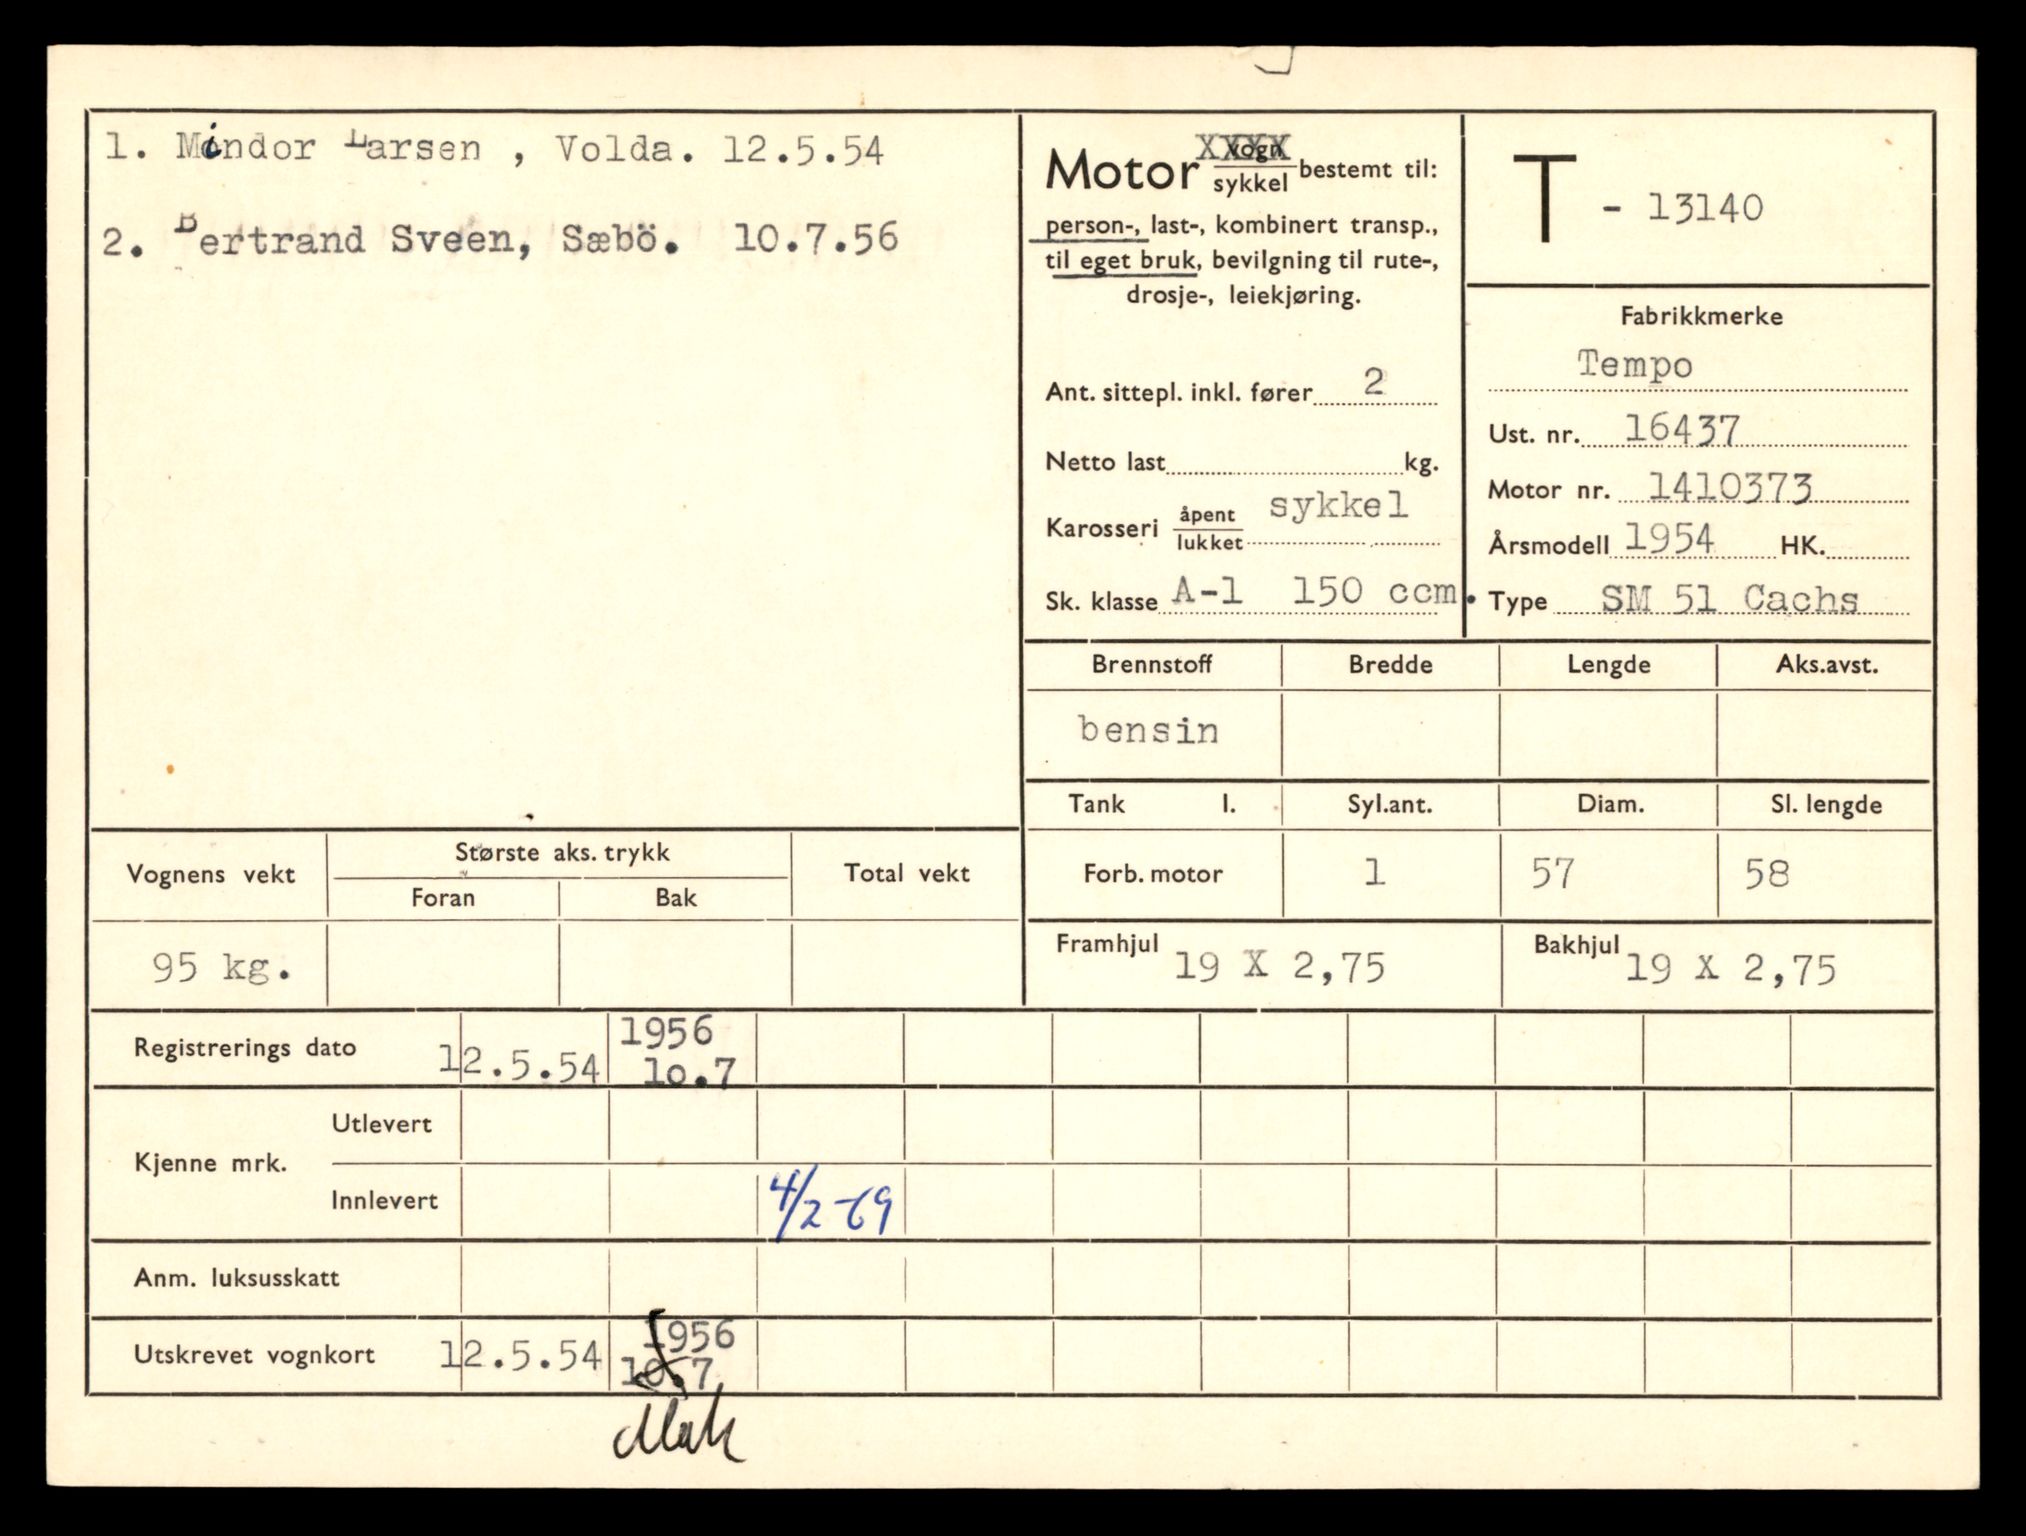 1. Mindor Larsen , Volda. 12.5.54
2. Bertrand Sveen, Sæbö. 10.7.56
Motor vogn XXXX / sykkel bestemt til:
person-, last-, kombinert transp.,
til eget bruk, bevilgning til rute-,
drosje-, leiekjøring.
Ant. sittepl. inkl. fører 2
Netto last kg.
Karosseri åpent / lukket sykkel
Sk. klasse A-1 150 ccm.
T - 13140
Fabrikkmerke
Tempo
Ust. nr. 16437
Motor nr. 1410373
Årsmodell 1954 HK.
Type SM 51 Cachs
Brennstoff Bredde Lengde Aks.avst.
bensin
Tank l. Syl.ant. Diam. Sl. lengde
Forb. motor 1 57 58
Framhjul 19 X 2,75 Bakhjul 19 X 2,75
Vognens vekt Største aks. trykk Total vekt
Foran Bak
95 kg.
Registrerings dato 12.5.54 1956
10.7
Kjenne mrk. Utlevert
Innlevert 4/2-69
Anm. luksusskatt
Utskrevet vognkort 12.5.54 1956
10.7